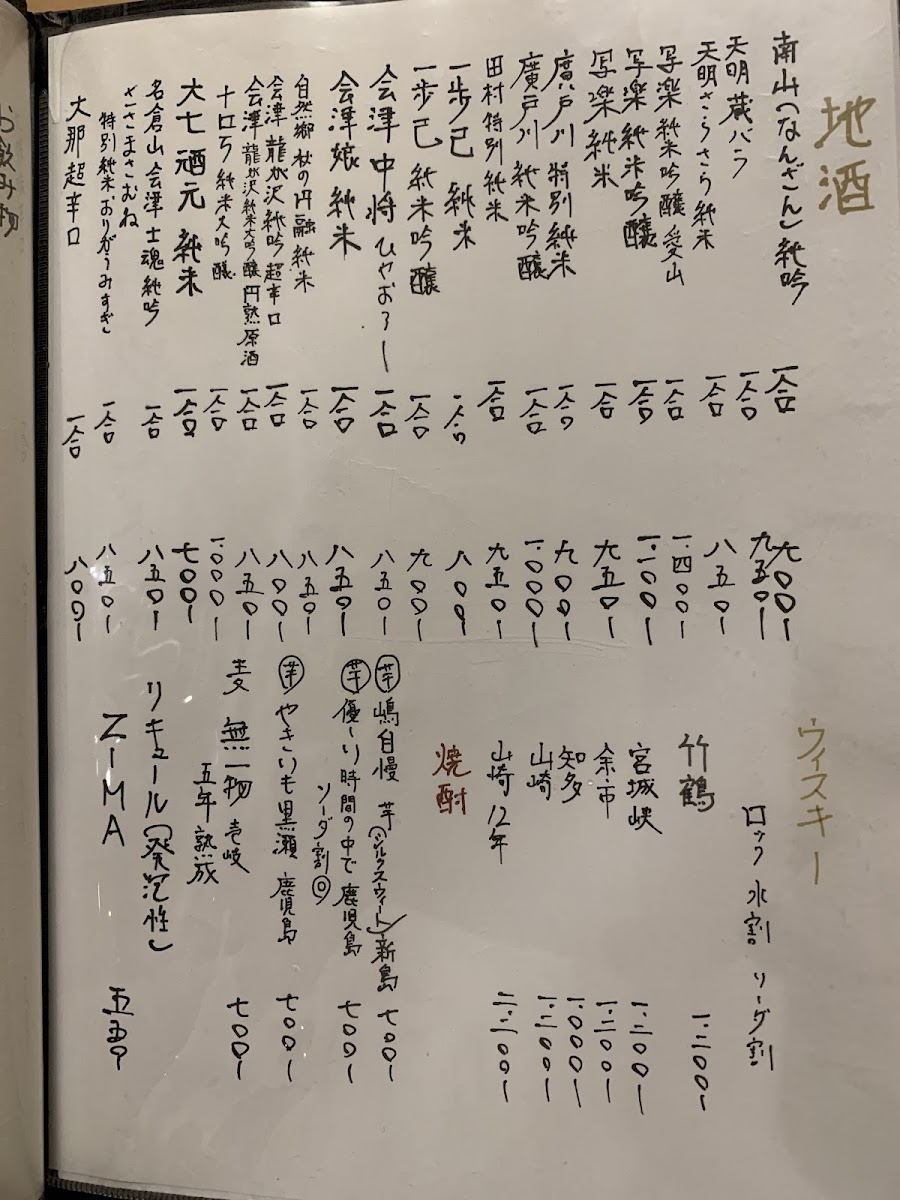 地酒
南山(なんざん)純吟 一合 九〇〇ー
天明 蔵バラ 一合 九五〇ー
天明さらさら純米 一合 八五〇ー
写楽 純米吟醸 愛山 一合 一.四〇〇ー
写楽 純米吟醸 一合 一.一〇〇ー
写楽 純米 一合 九五〇ー
廣戸川 特別純米 一合 九〇〇ー
廣戸川 純米吟醸 一合 一.〇〇〇ー
田村特別純米 一合 九五〇ー
一歩己 純米 一合 八〇〇ー
一歩己 純米吟醸 一合 九〇〇ー
会津中将 ひやおろし 一合 八五〇ー
会津娘 純米 一合 八五〇ー
自然郷 杜の円融 純米 一合 八五〇ー
会津龍が沢 純吟 超辛口 一合 八〇〇ー
会津龍が沢 純米大吟醸 円熟原酒 一合 八五〇ー
十ロ万 純米大吟醸 一合 一.〇〇〇ー
大七 酒元 純米 一合 七〇〇ー
名倉山 会津士魂 純吟 一合 八五〇ー
ささまさむね
特別純米おりがらみすぎ 一合 八五〇ー
大那超辛口 一合 八〇〇ー
ウィスキー
ロック 水割 ソーダ割
竹鶴 一.二〇〇ー
宮城峡 一.二〇〇ー
余市 一.二〇〇ー
知多 一.〇〇〇ー
山崎 一.二〇〇ー
山崎 12年 二.二〇〇ー
焼酎
芋 嶋自慢 芋(シルクスウィート)新島 七〇〇ー
芋 優しい時間の中で 鹿児島 七〇〇ー
ソーダ割◎
芋 やきいも黒瀬 鹿児島 七〇〇ー
麦 無一物 壱岐 七〇〇ー
五年熟成
リキュール(発泡性)
ZIMA 五五〇ー
お飲み物